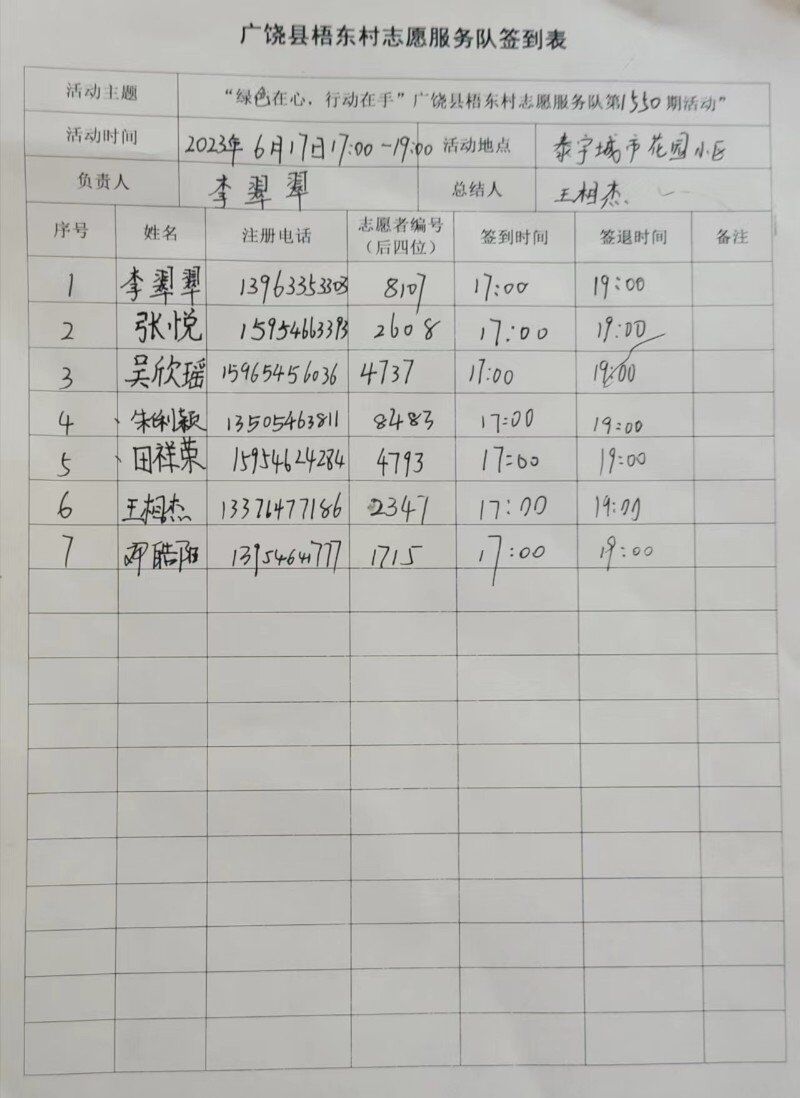 广饶县梧东村志愿服务队签到表
活动主题 “绿色在心，行动在手”广饶县梧东村志愿服务队第1550期活动”
活动时间 2023年6月17日17:00~19:00 活动地点 泰宇城市花园小区
负责人 李翠翠 总结人 王相杰
序号 姓名 注册电话 志愿者编号（后四位） 签到时间 签退时间 备注
1 李翠翠 13963353303 8107 17:00 19:00
2 张悦 15954663393 2608 17:00 19:00
3 吴欣瑶 15965456036 4737 17:00 19:00
4 朱利颖 13505463811 8483 17:00 19:00
5 田祥荣 15954624284 4793 17:00 19:00
6 王相杰 13376477186 2347 17:00 19:00
7 邓皓阳 13954641777 1715 17:00 19:00